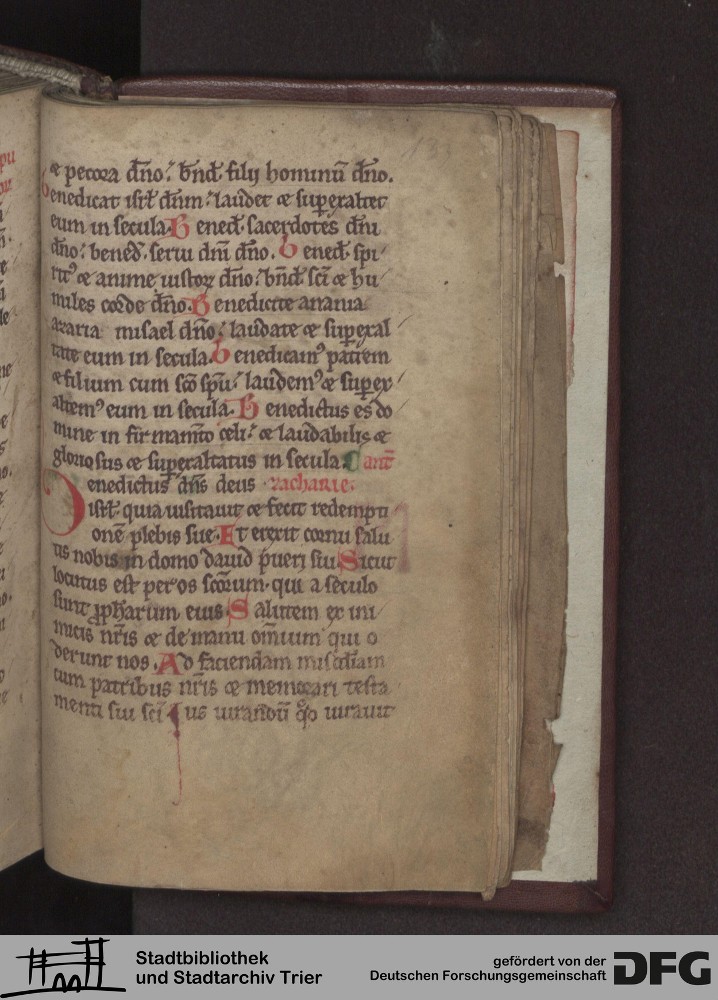 ⁊ pecora dño: bñd filij hominũ dño.
benedicat isrl dñm: laudet ⁊ superaltet
eum in secula. Bened sacerdotes dñi
dño: bened. serui dñi dño. bened spi
ritꝰ ⁊ anime iustoꝝ dño: bñd sci ⁊ hu
miles corde dño. Benedicite anania
azaria misael dño: laudate ⁊ superal
tate eum in secula. benedicamꝰ patrem
⁊ filium cum sco spu: laudemꝰ ⁊ super
altemꝰ eum in secula. Benedictus es do
mine in firmamto celi: ⁊ laudabilis ⁊
gloriosus ⁊ superaltatus in secula. Cant
Benedictus dñs deus zacharie.
isrl quia uisitauit ⁊ fecit redempti
onẽ plebis sue. Et erexit cornu salu
tis nobis in domo dauid pueri sui Sicut
locutus est per os scorum qui a seculo
sunt ꝓpharum eius Salutem ex ini
micis nris ⁊ de manu omium qui o
derunt nos. Ad faciendam miscdiam
cum patribus nris ⁊ memorari testa
menti sui sci Ius iurandũ qđ iurauit
Stadtbibliothek
und Stadtarchiv Trier
gefördert von der
Deutschen Forschungsgemeinschaft
DFG